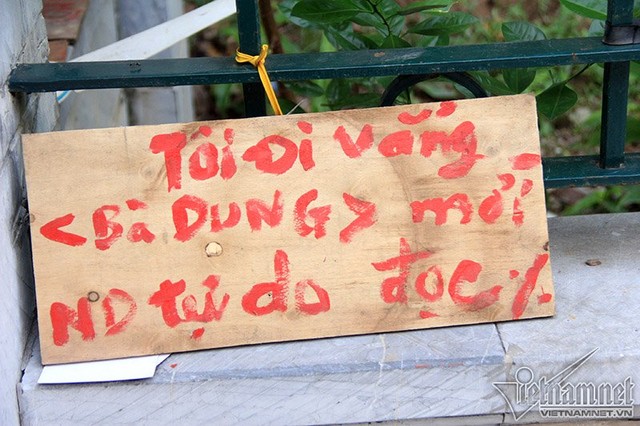 TÔI ĐI VẮNG
<BÀ DUNG> MỜI
ND tự do đọc ./.
vietnamnet
VIETNAMNET.VN